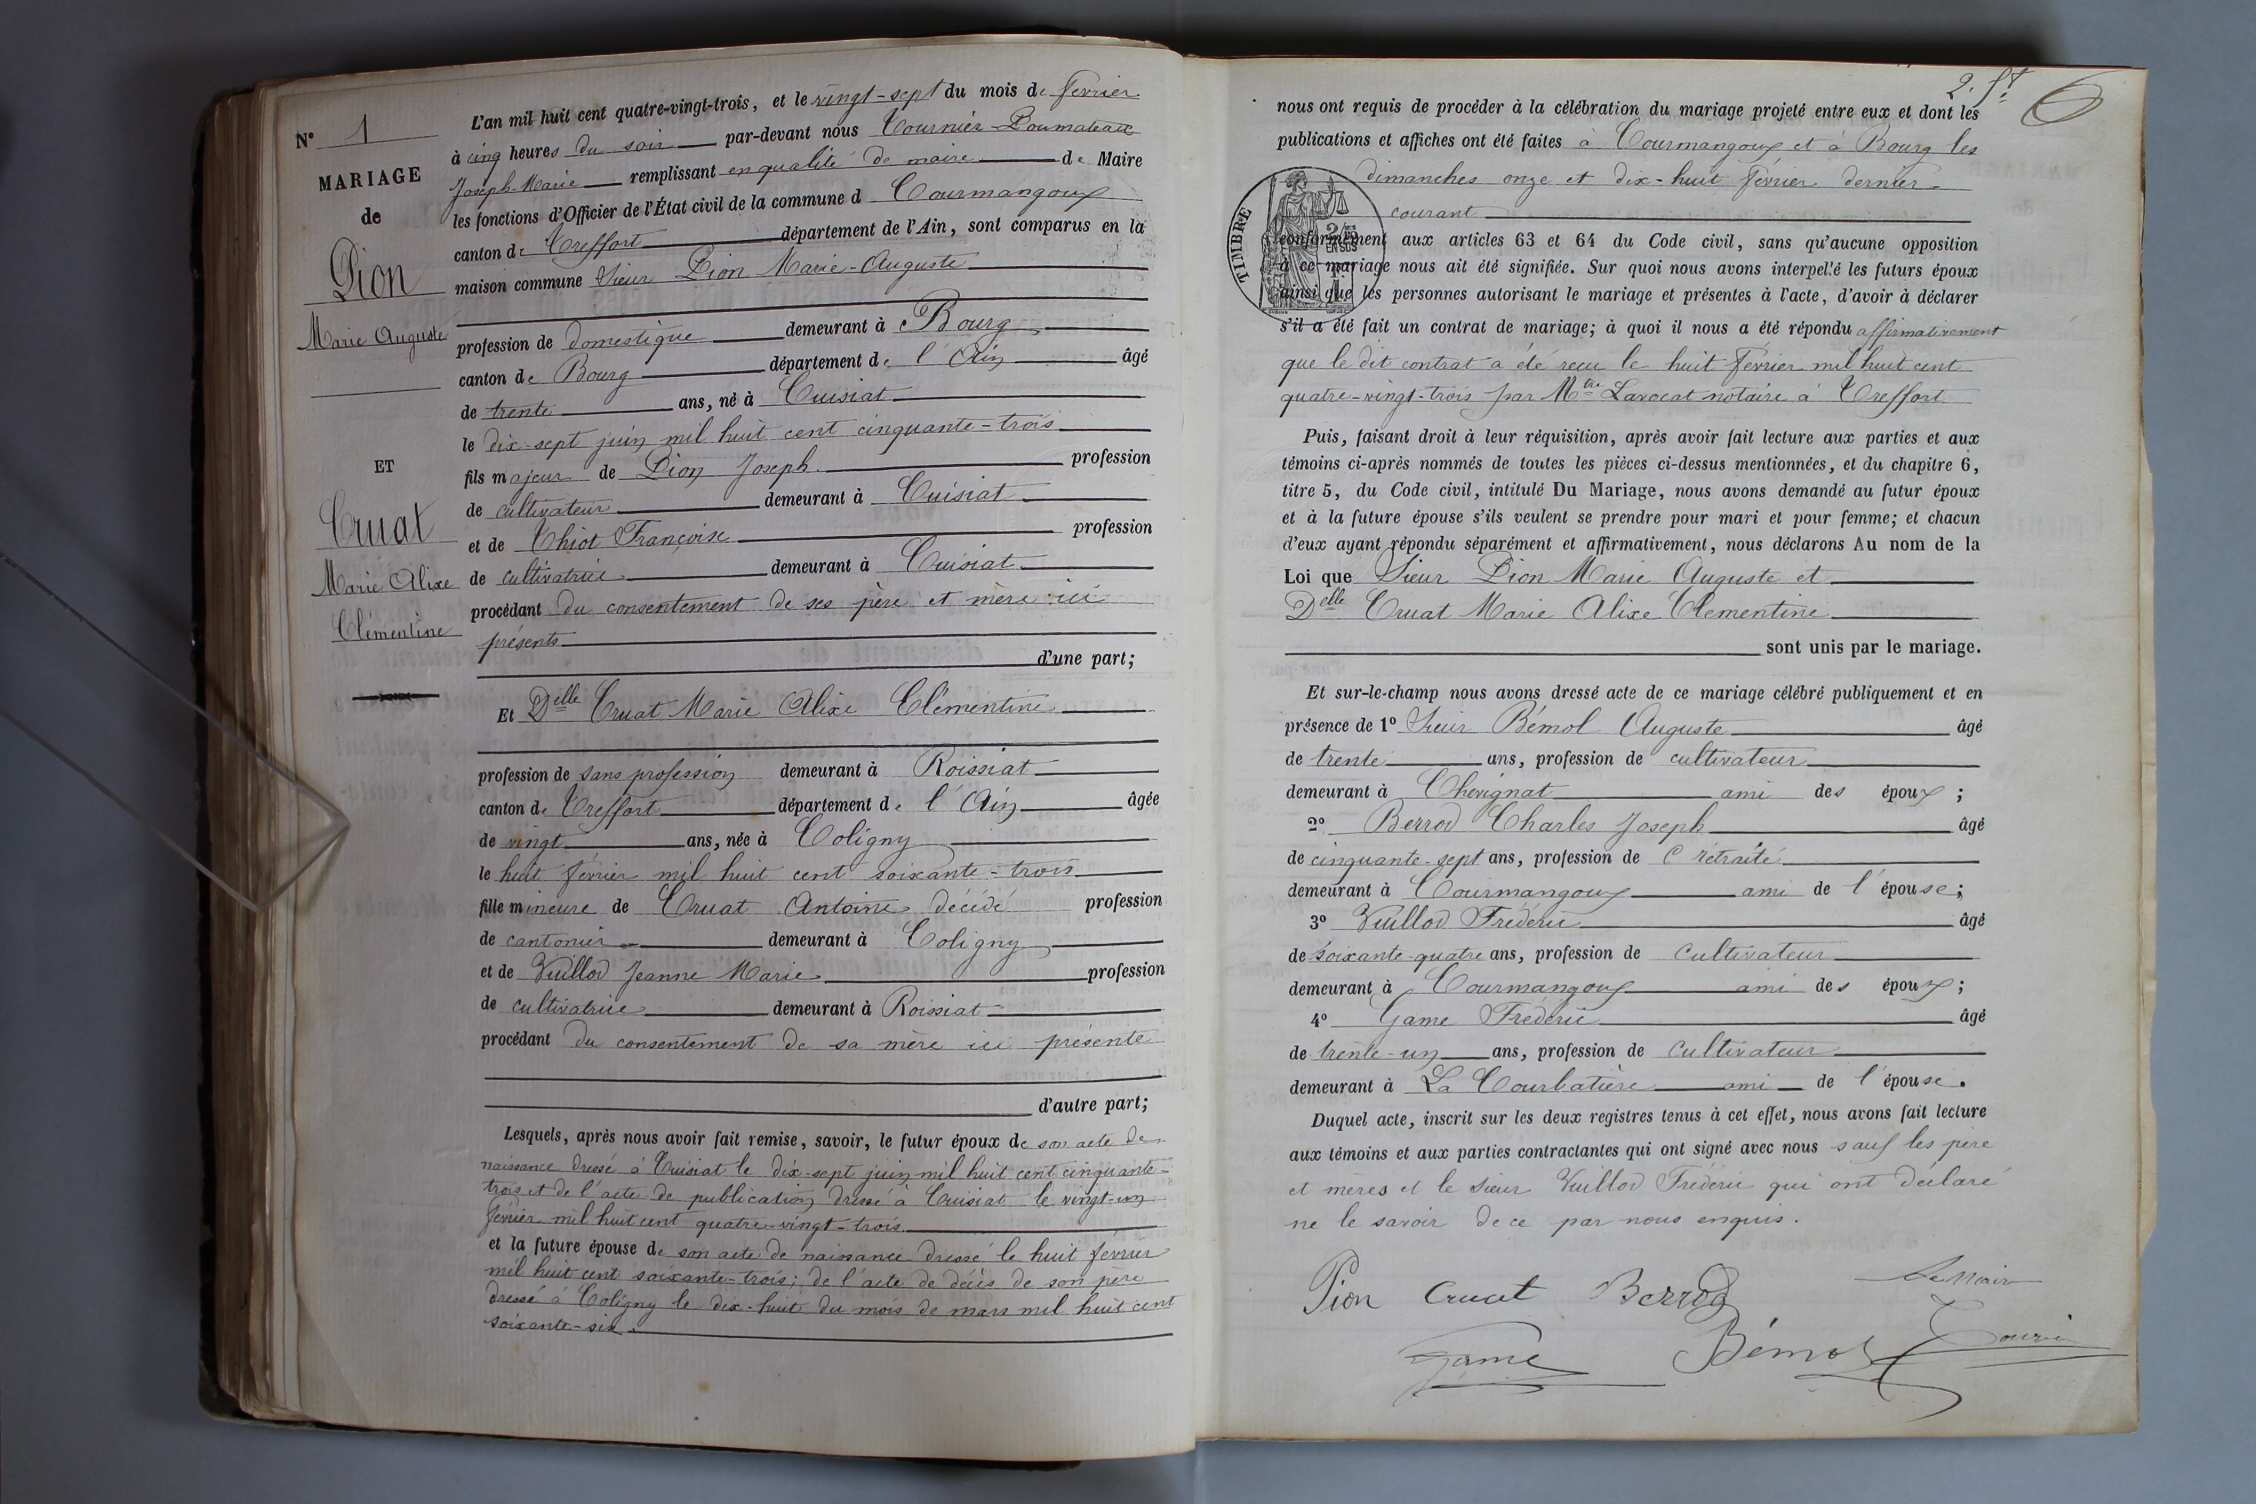 N° 1
MARIAGE
de
Pion
Marie Auguste
ET
Cruat
Marie Alixe
Clémentine
L'an mil huit cent quatre-vingt-trois, et le vingt-sept du mois de février
à cinq heures du soir par-devant nous Tournier
Joseph-Marie remplissant en qualité de maire de Maire
les fonctions d'Officier de l'État civil de la commune d Courmangoux
canton de Treffort département de l'Ain, sont comparus en la
maison commune Sieur Pion Marie-Auguste
profession de domestique demeurant à Bourg
canton de Bourg département de l'Ain âgé
de trente ans, né à Cuisiat
le dix-sept juin mil huit cent cinquante-trois
fils majeur de Pion Joseph profession
de cultivateur demeurant à Cuisiat
et de Chiot Françoise profession
de cultivatrice demeurant à Cuisiat
procédant du consentement de ses père et mère ici
présents
d'une part;
Et Delle Cruat Marie Alixe Clémentine
profession de sans profession demeurant à Roissiat
canton de Treffort département de l'Ain âgée
de vingt ans, née à Coligny
le huit février mil huit cent soixante-trois
fille mineure de Cruat Antoine décédé profession
de cantonier demeurant à Coligny
et de Vuillod Jeanne Marie profession
de cultivatrice demeurant à Roissiat
procédant du consentement de sa mère ici présente
d'autre part;
Lesquels, après nous avoir fait remise, savoir, le futur époux de son acte de
naissance dressé à Cuisiat le dix-sept juin mil huit cent cinquante-
trois et de l'acte de publication dressé à Cuisiat le vingt-un
février mil huit cent quatre-vingt-trois
et la future épouse de son acte de naissance dressé le huit février
mil huit cent soixante-trois; de l'acte de décès de son père
dressé à Coligny le dix-huit du mois de mars mil huit cent
soixante-six.
2. ft.
6
nous ont requis de procéder à la célébration du mariage projeté entre eux et dont les
publications et affiches ont été faites à Courmangoux et à Bourg les
dimanches onze et dix-huit février dernier
courant
TIMBRE
2/10mes
EN SUS
conformément aux articles 63 et 64 du Code civil, sans qu'aucune opposition
à ce mariage nous ait été signifiée. Sur quoi nous avons interpellé les futurs époux
ainsi que les personnes autorisant le mariage et présentes à l'acte, d'avoir à déclarer
s'il a été fait un contrat de mariage; à quoi il nous a été répondu affirmativement
que le dit contrat a été reçu le huit février mil huit cent
quatre-vingt-trois par Mtre Lavocat notaire à Treffort
Puis, faisant droit à leur réquisition, après avoir fait lecture aux parties et aux
témoins ci-après nommés de toutes les pièces ci-dessus mentionnées, et du chapitre 6,
titre 5, du Code civil, intitulé Du Mariage, nous avons demandé au futur époux
et à la future épouse s'ils veulent se prendre pour mari et pour femme; et chacun
d'eux ayant répondu séparément et affirmativement, nous déclarons Au nom de la
Loi que Sieur Pion Marie Auguste et
Delle Cruat Marie Alixe Clementine
sont unis par le mariage.
Et sur-le-champ nous avons dressé acte de ce mariage célébré publiquement et en
présence de 1° Sieur Bémol Auguste âgé
de trente ans, profession de cultivateur
demeurant à Chevignat ami des époux;
2° Berrod Charles Joseph âgé
de cinquante-sept ans, profession de retraité
demeurant à Courmangoux ami de l'épouse;
3° Vuillod Frédéric âgé
de soixante-quatre ans, profession de cultivateur
demeurant à Courmangoux ami des époux;
4° Game Frédéric âgé
de trente-un ans, profession de cultivateur
demeurant à La Courbatière ami de l'épouse.
Duquel acte, inscrit sur les deux registres tenus à cet effet, nous avons fait lecture
aux témoins et aux parties contractantes qui ont signé avec nous sauf les père
et meres et le sieur Vuillod Frédéric qui ont déclaré
ne le savoir de ce par nous enquis.
Pion Cruat Berrod Le Maire
Game Bémol